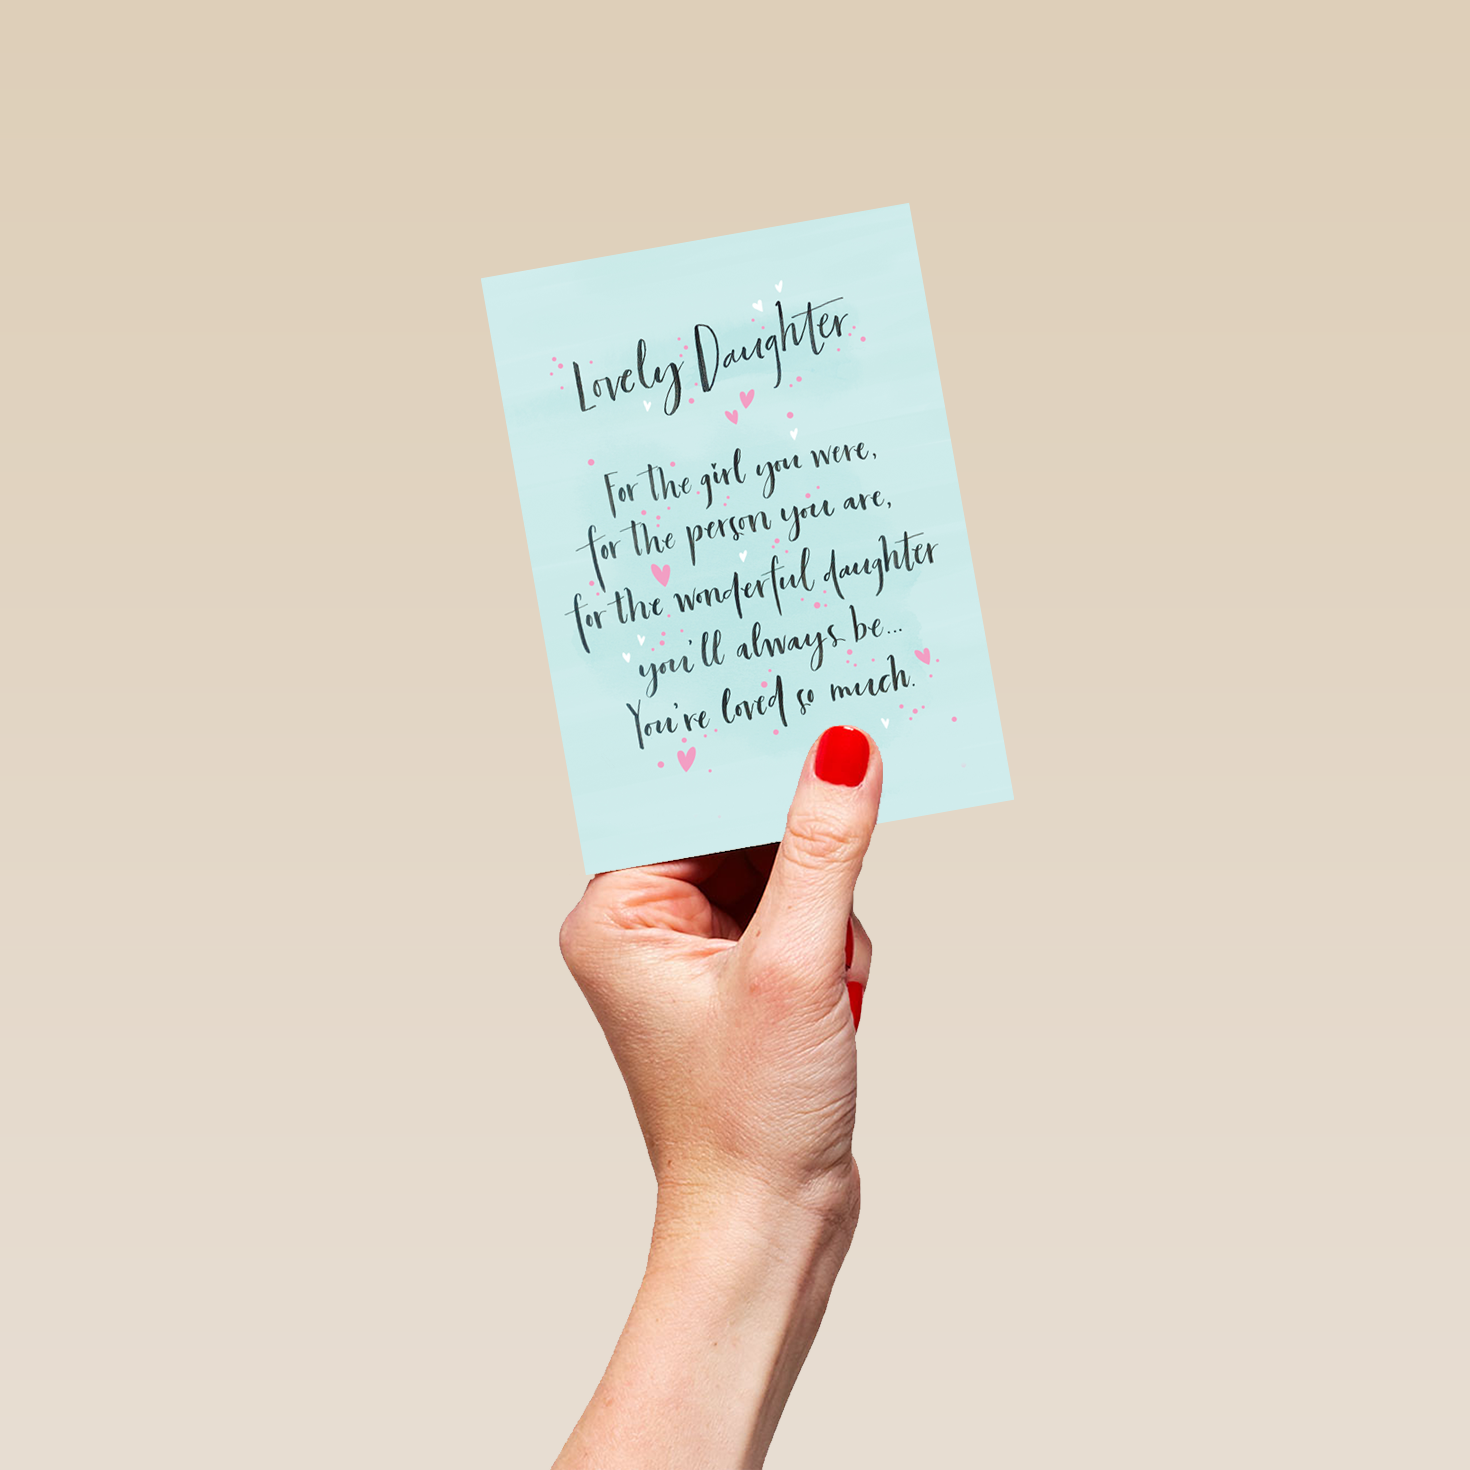 Lovely Daughter
For the girl you were,
for the person you are,
for the wonderful daughter
you'll always be...
You're loved so much.